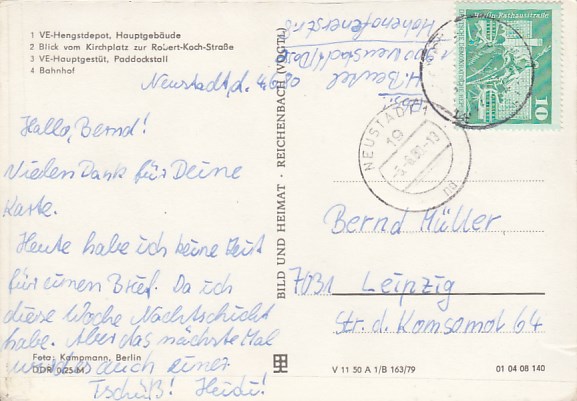 1 VE-Hengstdepot, Hauptgebäude
2 Blick vom Kirchplatz zur Robert-Koch-Straße
3 VE-Hauptgestüt, Paddockstall
4 Bahnhof
Neustadt, d. 4.6.80
Hallo, Bernd!
Vielen Dank für Deine
Karte.
Heute habe ich keine Zeit
für einen Brief. Da ich
diese Woche Nachtschicht
habe. Aber das nächste Mal
wird es auch einer
Tschüß! Heidi!
Foto: Kampmann, Berlin
DDR 0,25 M
BILD UND HEIMAT · REICHENBACH (VOGTL)
Abs.:
H. Beutel
Neustadt/Dosse
Berlin-Rathausstraße
10
NEUSTADT 1
19
-5.-6.80-13
Bernd Müller
7031 Leipzig
Str. d. Komsomol 64
V 11 50 A 1/B 163/79
01 04 08 140